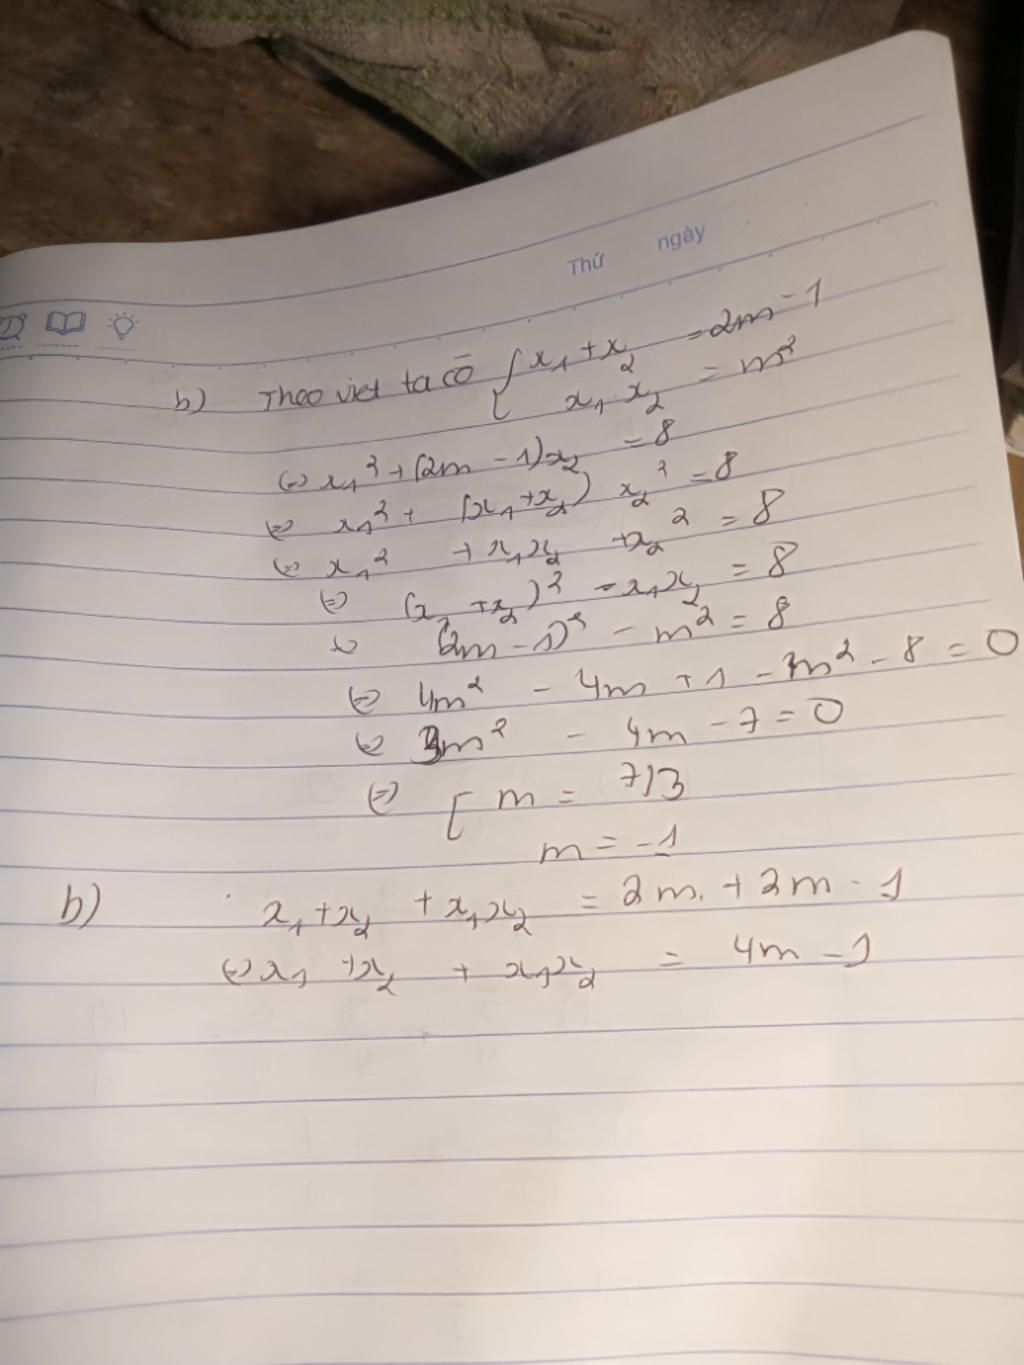 Thứ ngày
b) Theo viet ta có { x₁ + x₂ = 2m - 1
x₁ x₂ = m²
(=) x₁² + (2m - 1)x₂ = 8
(=) x₁² + (x₁ + x₂) x₂² = 8
(=) x₁² + x₁x₂ + x₂² = 8
(=) (x₁ + x₂)² - x₁x₂ = 8
(=) (2m - 1)² - m² = 8
(=) 4m² - 4m + 1 - m² - 8 = 0
(=) 3m² - 4m - 7 = 0
(=) [ m = 7/3
m = -1
b) x₁ + x₂ + x₁x₂ = 2m + 2m - 1
(=) x₁ + x₂ + x₁x₂ = 4m - 1